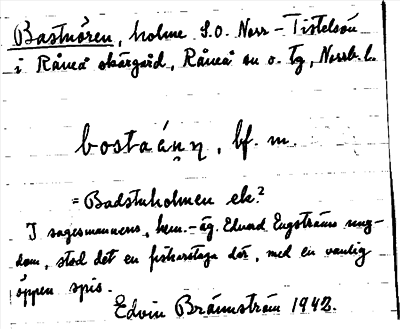 Bastuören, holme S.O. Norr-Tistelsön
i Råneå skärgård, Råneå sn o. tg, Norrb. l.
bf. m.
= Badstuholmen el.?
I sagesmannens, hem.-äg. Edvard Engströms ung-
dom, stod det en fiskarstuga där, med en vanlig
öppen spis.
Edvin Brännström 1942.